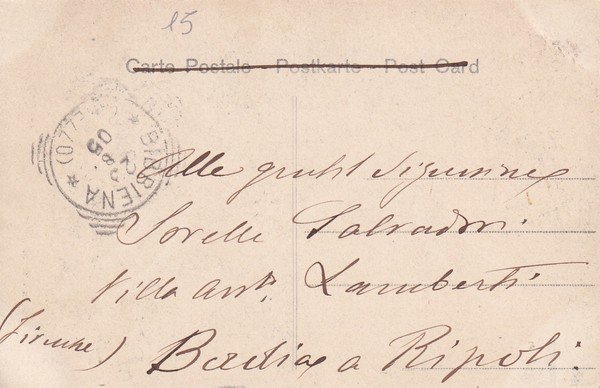 15
Carte Postale - Postkarte - Post Card
BIBBIENA (AREZZO)
05
Alle gentil Signorine
Sorelle Salvadori
Villa Lamberti
(Firenze) Badia a Ripoli.